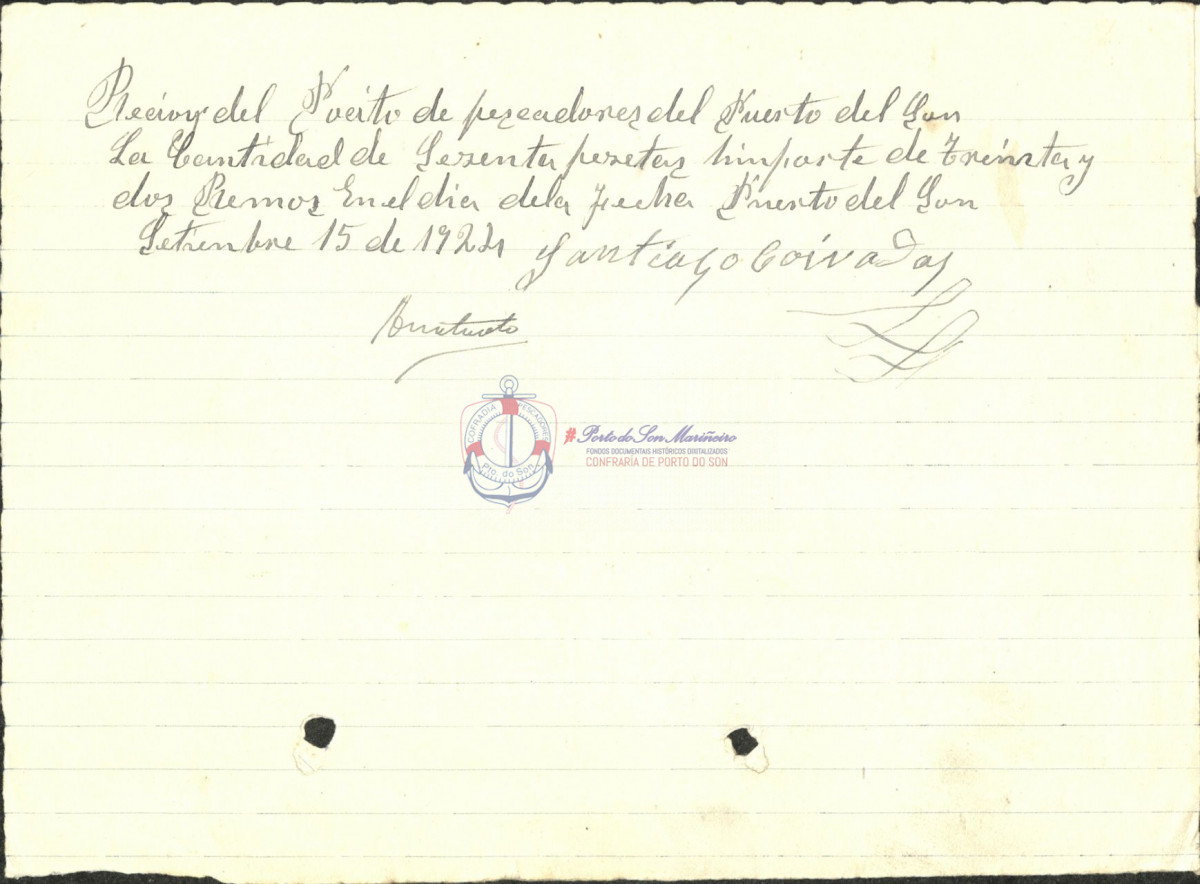 Recivy del Pocito de pescadores del Puerto del Son
La Cantidad de Sesenta pesetas himporte de treinta y
dos Remos En el dia dela fecha Puerto del Son
Setienbre 15 de 1924 Santiago
COFRADIA PESCADORES
Pto. do Son
#Porto do Son Mariñeiro
FONDOS DOCUMENTAIS HISTÓRICOS DIXITALIZADOS
CONFRARÍA DE PORTO DO SON